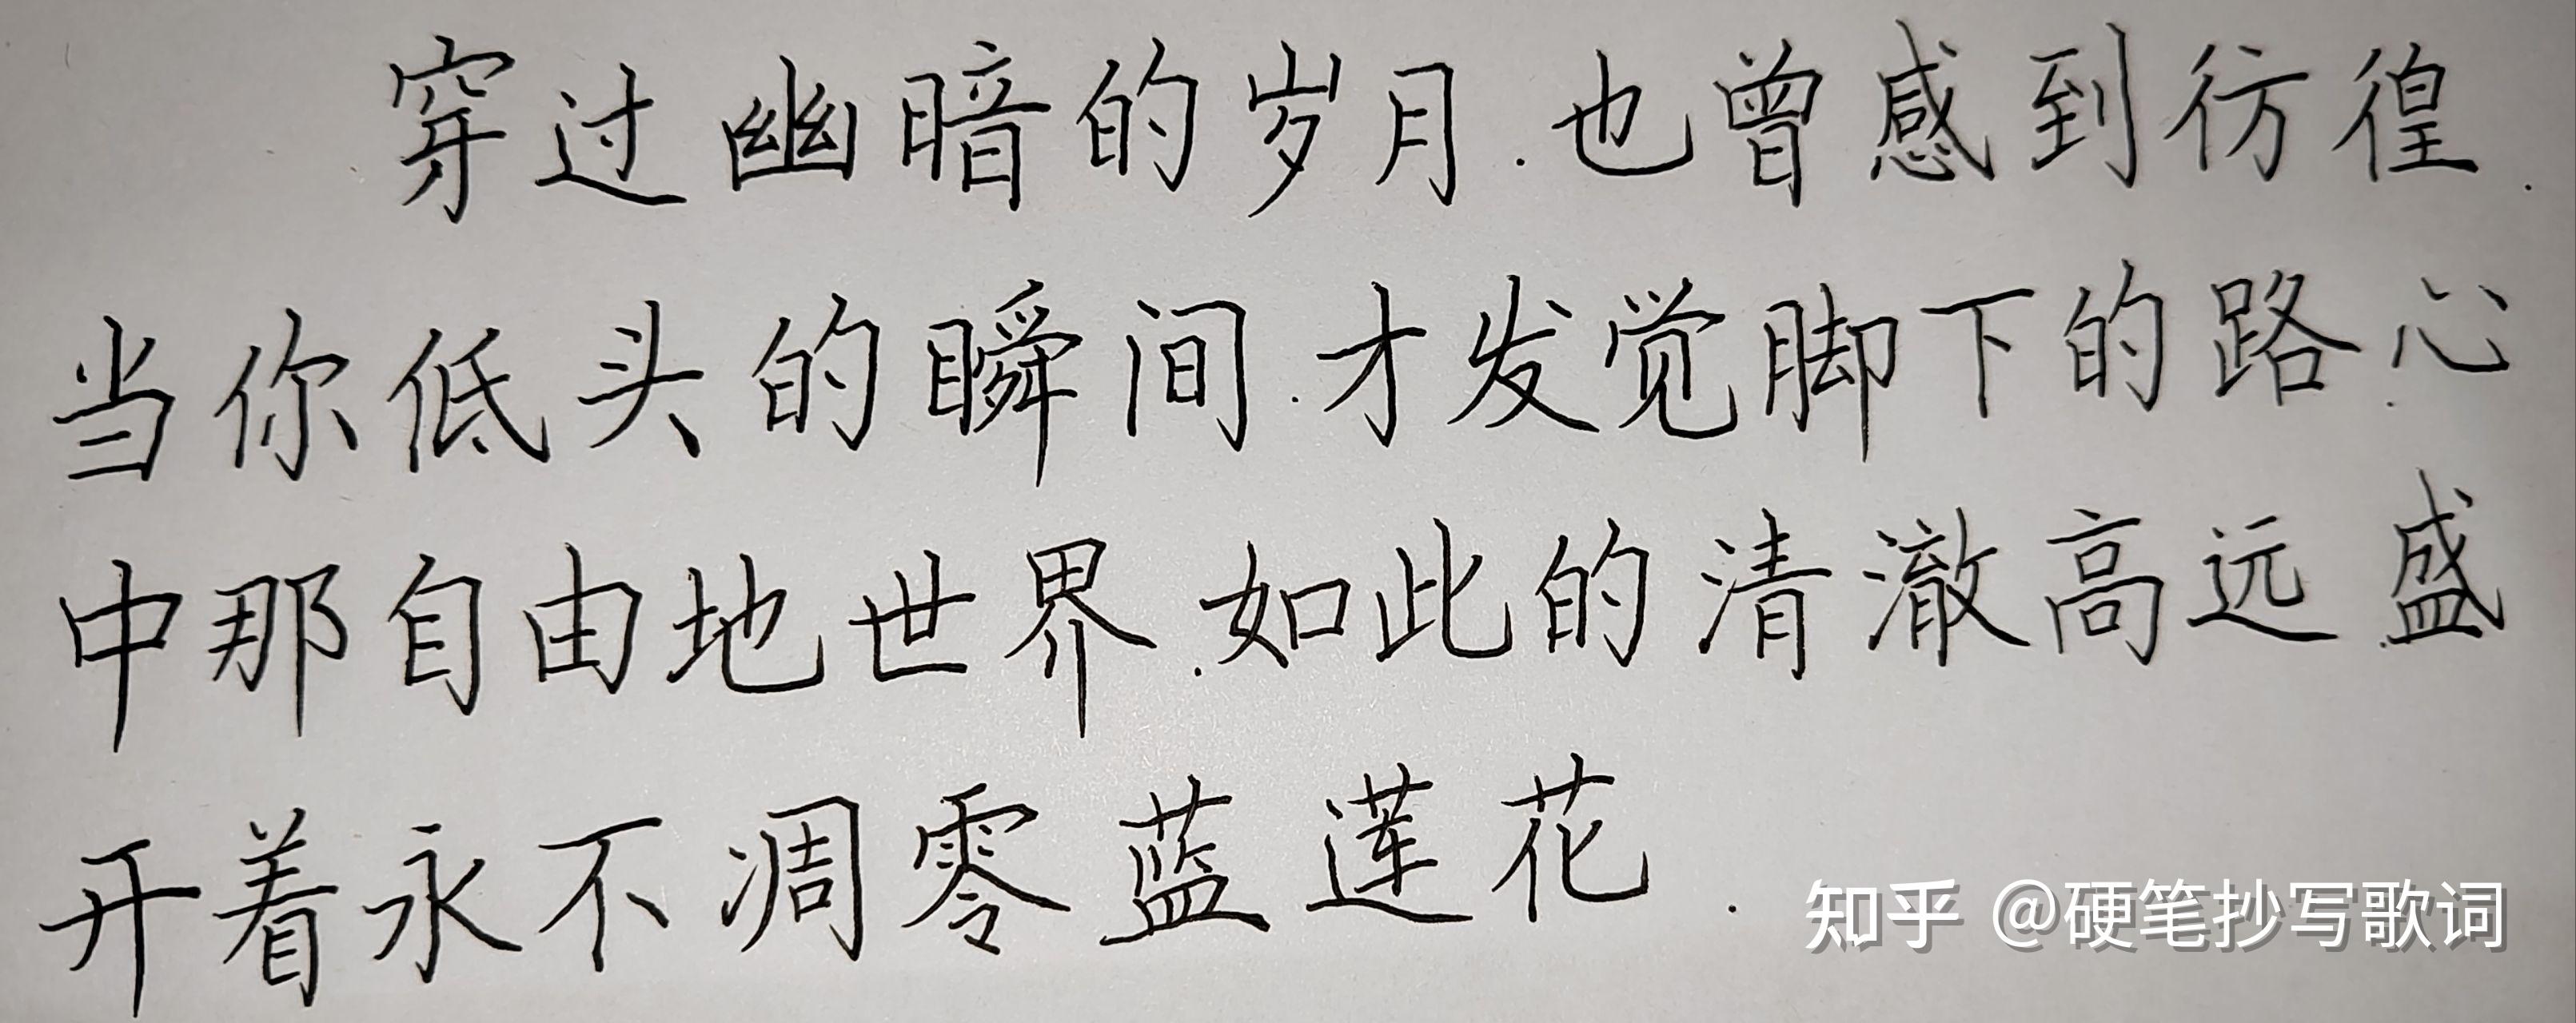 穿过幽暗的岁月.也曾感到彷徨.
当你低头的瞬间.才发觉脚下的路.心
中那自由地世界.如此的清澈高远.盛
开着永不凋零蓝莲花.
知乎 @硬笔抄写歌词